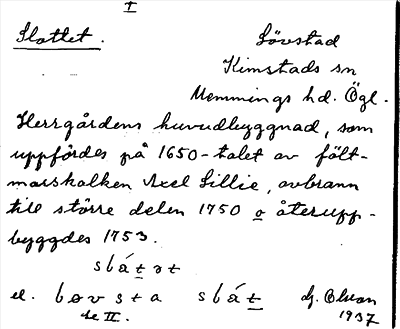 I
Slottet.
Lövstad
Kimstads sn
Memmings hd. Ögl.
Herrgårdens huvudbyggnad, som
uppfördes på 1650-talet av fält-
marskalken Axel Lillie, avbrann
till större delen 1750 o återupp-
byggdes 1753.
slåtət
el. løvsta slåt
se II.
Olson
1937